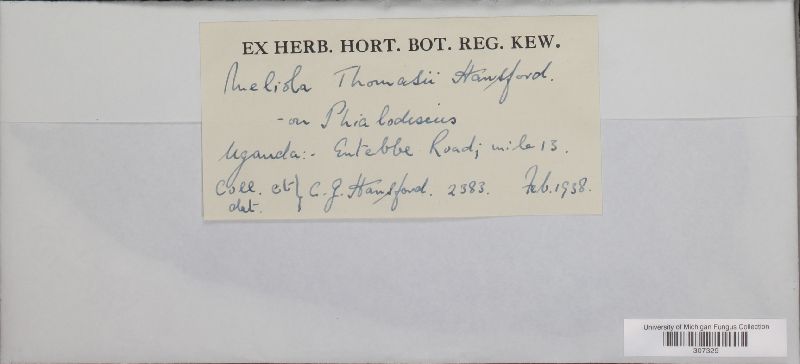 EX HERB. HORT. BOT. REG. KEW.
Meliola Thomasii Hansford.
- on Phialodiscus
Uganda:- Entebbe Road; mile 13.
Coll. et } C. G. Hansford. 2383. Feb. 1938.
det.
University of Michigan Fungus Collection
307325